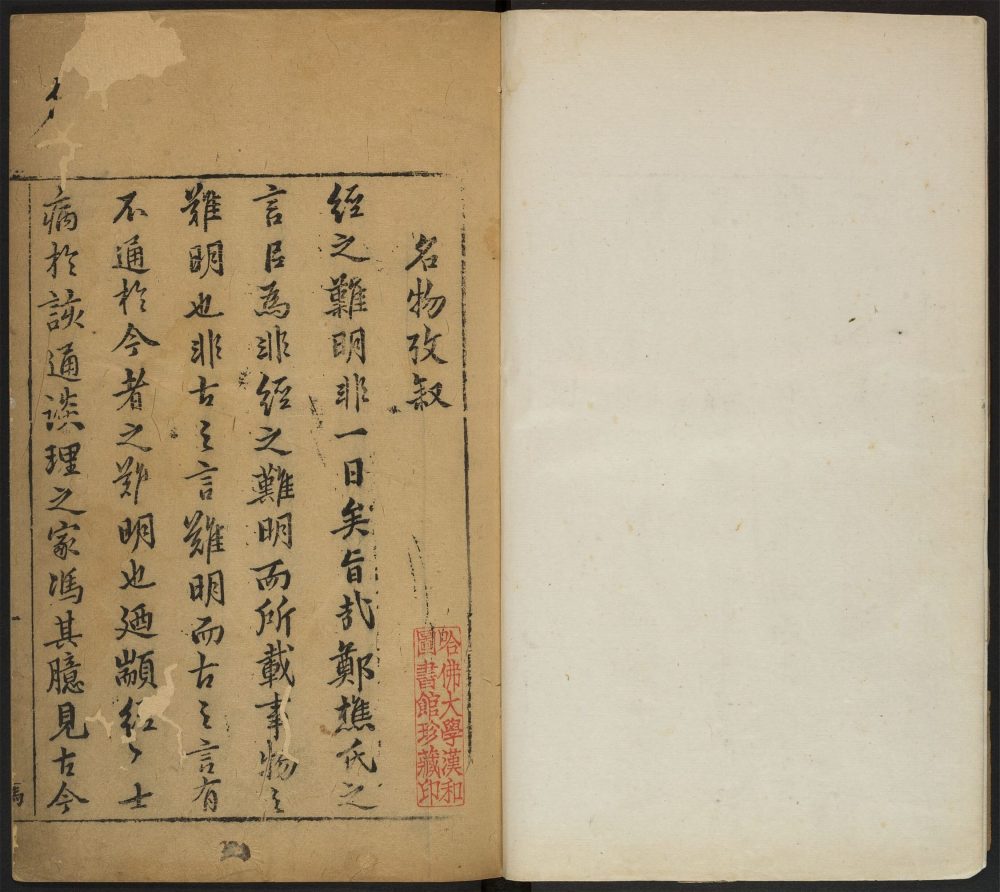 名物攷叙
經之難明非一日矣旨哉鄭樵氏之
言臣為非經之難明而所載事物之
難明也非古之言難明而古之言有
不通於今者之難明也廼顓經之士
病於該通談理之家馮其臆見古今
哈佛大學漢和
圖書館珍藏印